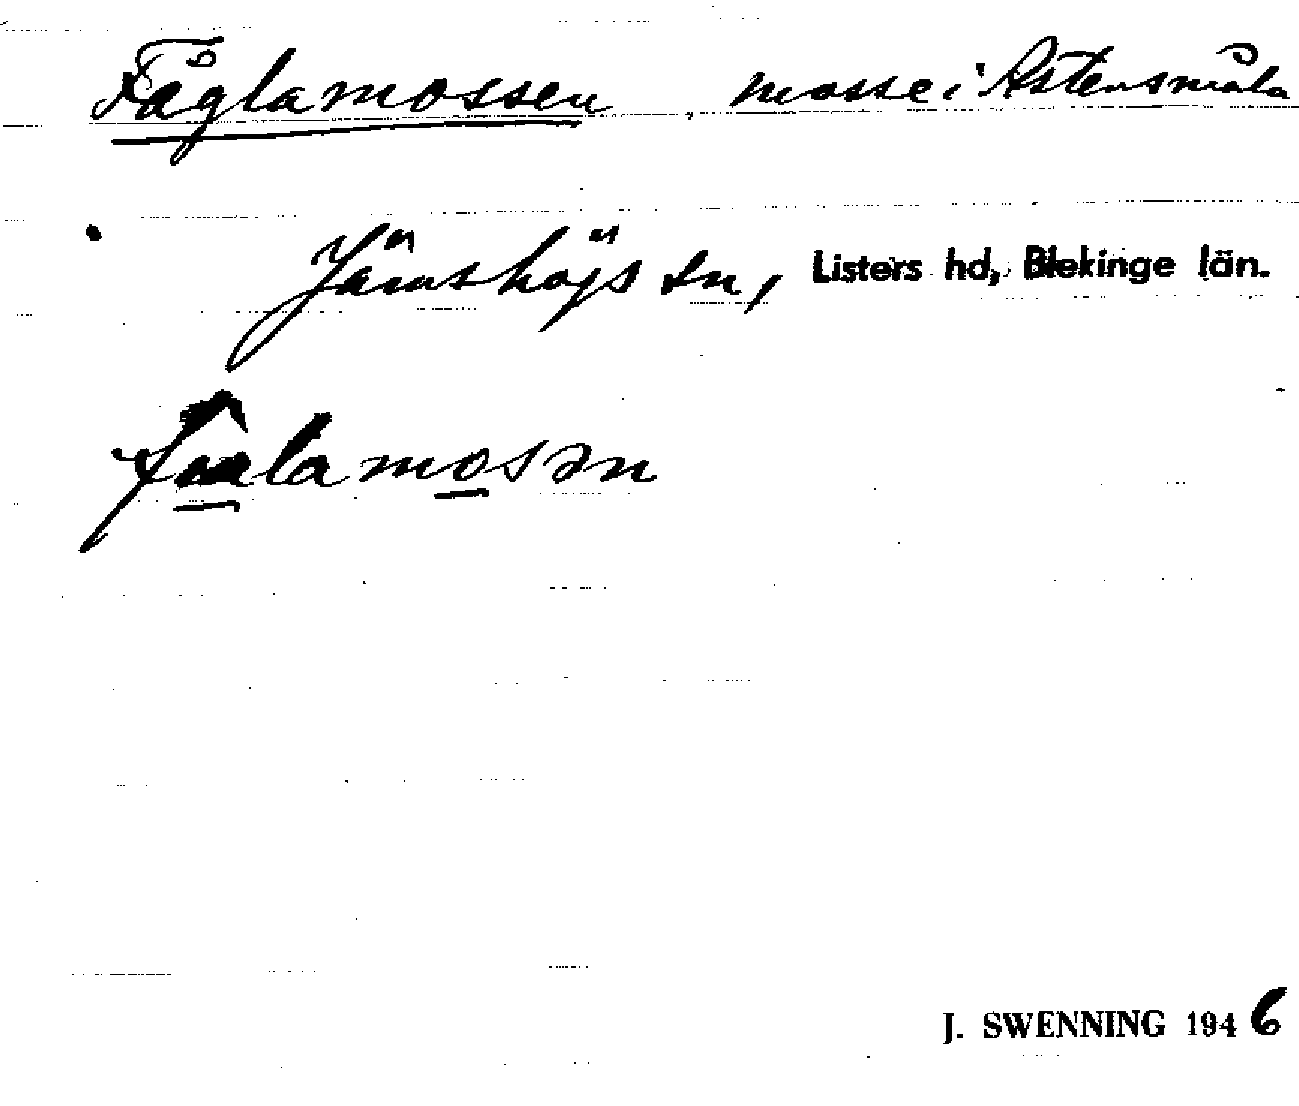 Fåglamossen, mosse i Astensmåla
Jämshögs sn, Listers hd, Blekinge län.
lamosən
J. SWENNING 1946